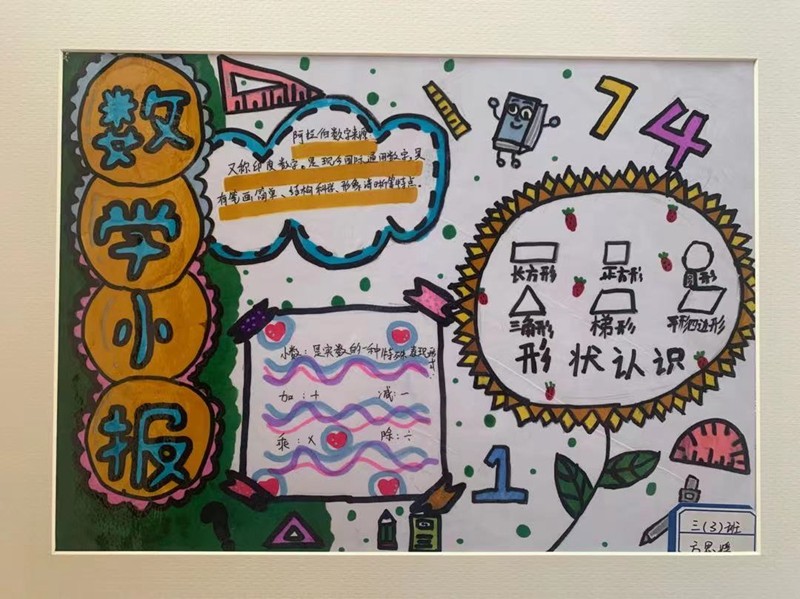 数
学
小
报
阿拉伯数字来源
又称印度数字。是现今国际通用数字,具
有笔画简单、结构科学、形象清晰等特点。
7
4
长方形
正方形
圆形
三角形
梯形
平形四边形
形状认识
小数:是实数的一种特殊表现形式.
加:+
减:-
乘:×
除:÷
1
三(3)班